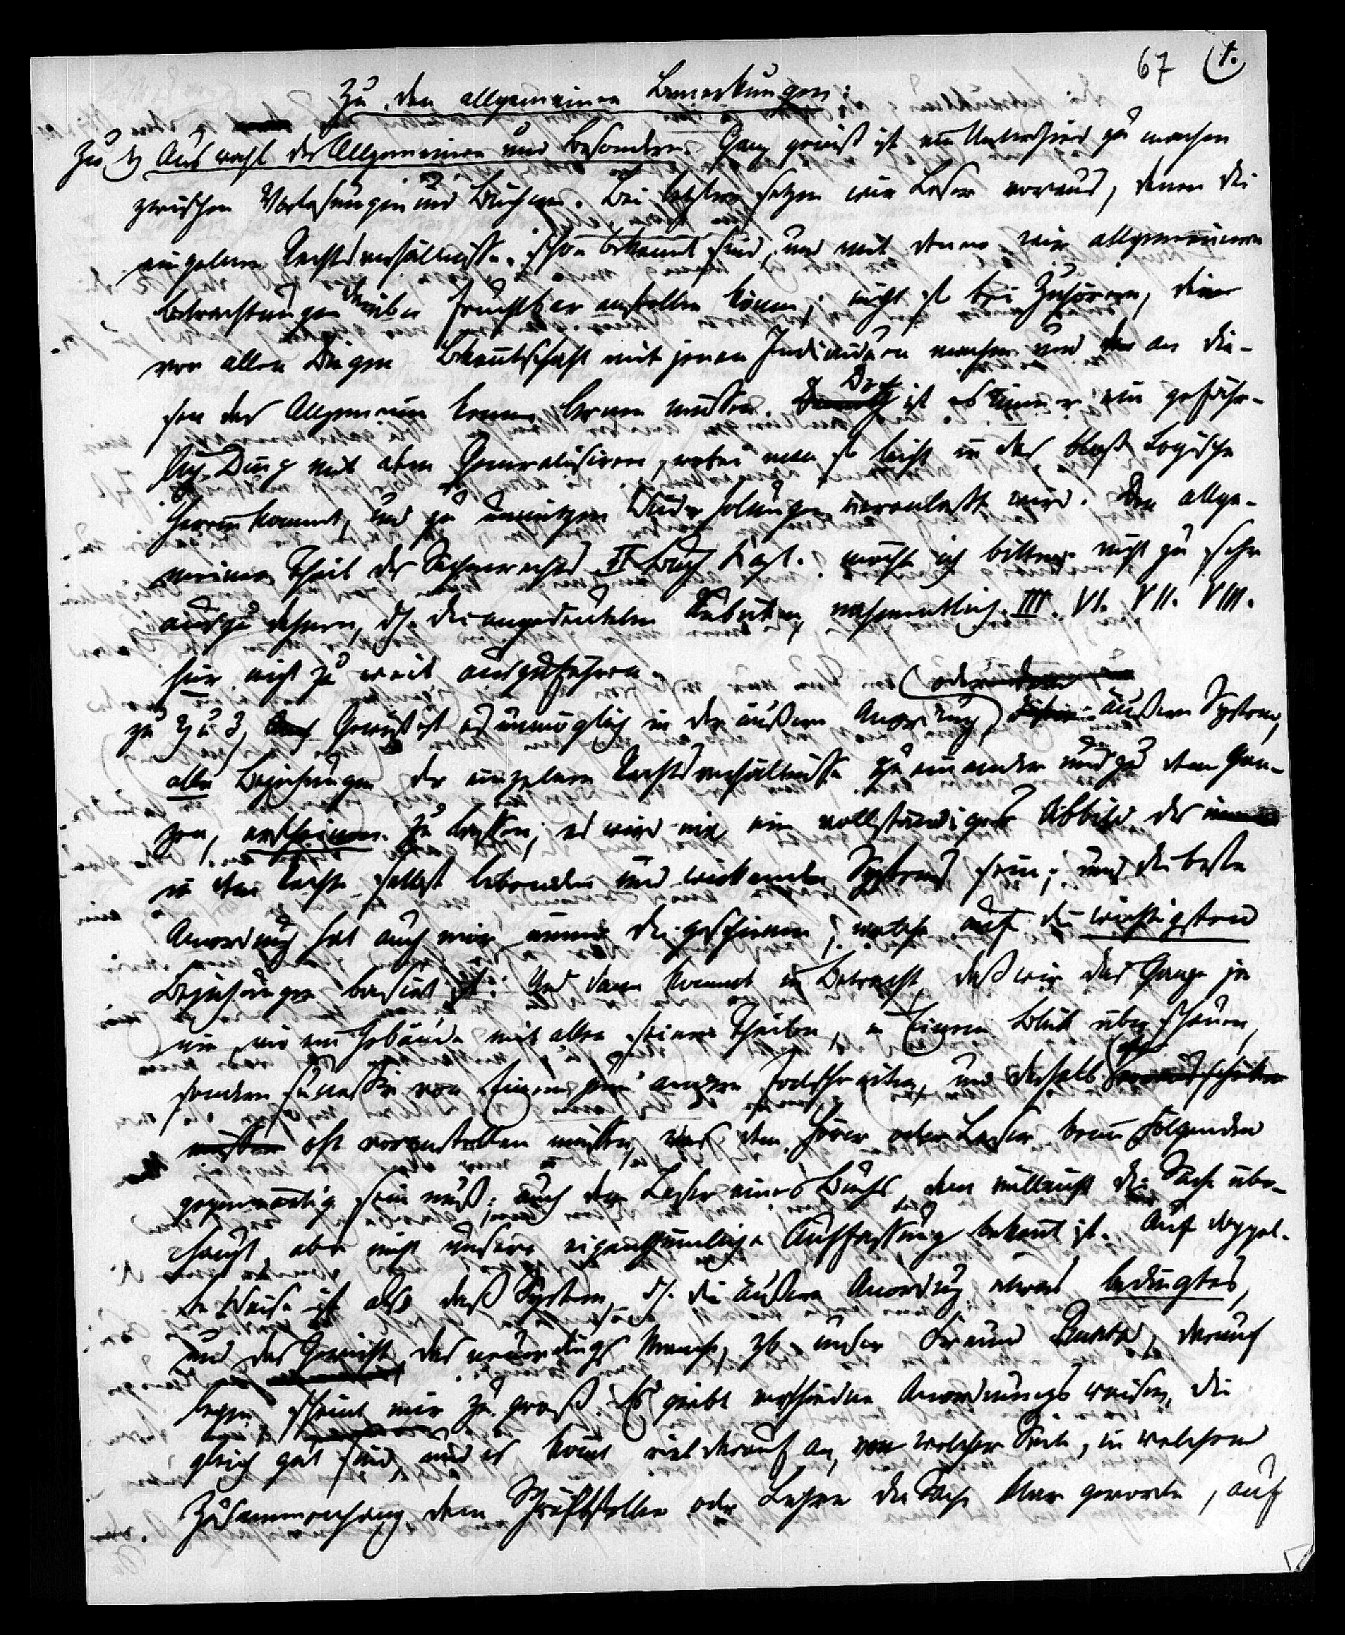 67 1.
Zu den allgemeinen Bemerkungen:
Zu 1, Auswahl des Allgemeinen und Besondern. Ganz gewiß ist ein Unterschied zu machen
zwischen Vorlesungen und Büchern. Bei letztern setzen wir Leser voraus, denen die
einzelnen Rechtsverhältnisse schon bekannt sind, und mit denen wir allgemeinere
Betrachtungen darüber fruchtbar anstellen können; nicht so bei Zuhörern, die
vor allen Dingen Bekanntschaft mit jenen Individuen machen und an die-
sen das Allgemeine kennen lernen müssen. Doch ist es immer ein gefähr-
lich Ding mit dem Generalisiren, wobei man so leicht in das bloß Logische
hereinkommt, und zu unnützen Wiederholungen veranlaßt wird. Den allge-
meinen Theil des Sachenrechts II Buch Kap. 1. möcht ich bitten nicht zu sehr
auszudehnen, d.h. die angedeuteten Rubriken, nahmentlich III. VI. VII. VIII.
hier nicht zu weit auszuführen.
zu 2 u 3, Gewiß ist es unmöglich in der äußern Anordnung, oder dem äußern System,
alle Beziehungen der einzelnen Rechtsverhältnisse zu einander und zu dem Gan-
zen, erscheinen zu lassen; es wird nie ein vollständiges Abbild des
in dem Rechte selbst lebenden und wirkenden Systems sein; und die beste
Anordnung hat auch mir immer die geschienen, welche auf die wichtigsten
Beziehungen basirt ist. Und dann kommt in Betracht, daß wir das Ganze ja
nie, wie ein Gebäude mit allen seinen Theilen, in Einem Blick überschauen,
sondern successiv von Einem zum andern fortschreiten, und deshalb
oft voranstellen müssen, was dem Hörer oder Leser beim Folgenden
gegenwärtig sein muß; auch dem Leser eines Buchs, dem vielleicht die Sache über-
haupt, aber nicht unsere eigenthümliche Auffassung bekannt ist. Auf doppel-
te Weise ist also das System, d.h. die äußere Anordnung etwas bedingtes,
und das Gewicht, das neuerdings Manche, zb. unser Freund Puchta, darauf
legen, scheint mir zu groß. Es giebt verschiedne Anordnungsweisen, die
gleich gut sind, und es kommt viel darauf an, von welcher Seite, in welchem
Zusammenhang dem Schriftsteller oder Lehrer die Sache klar geworden, auf